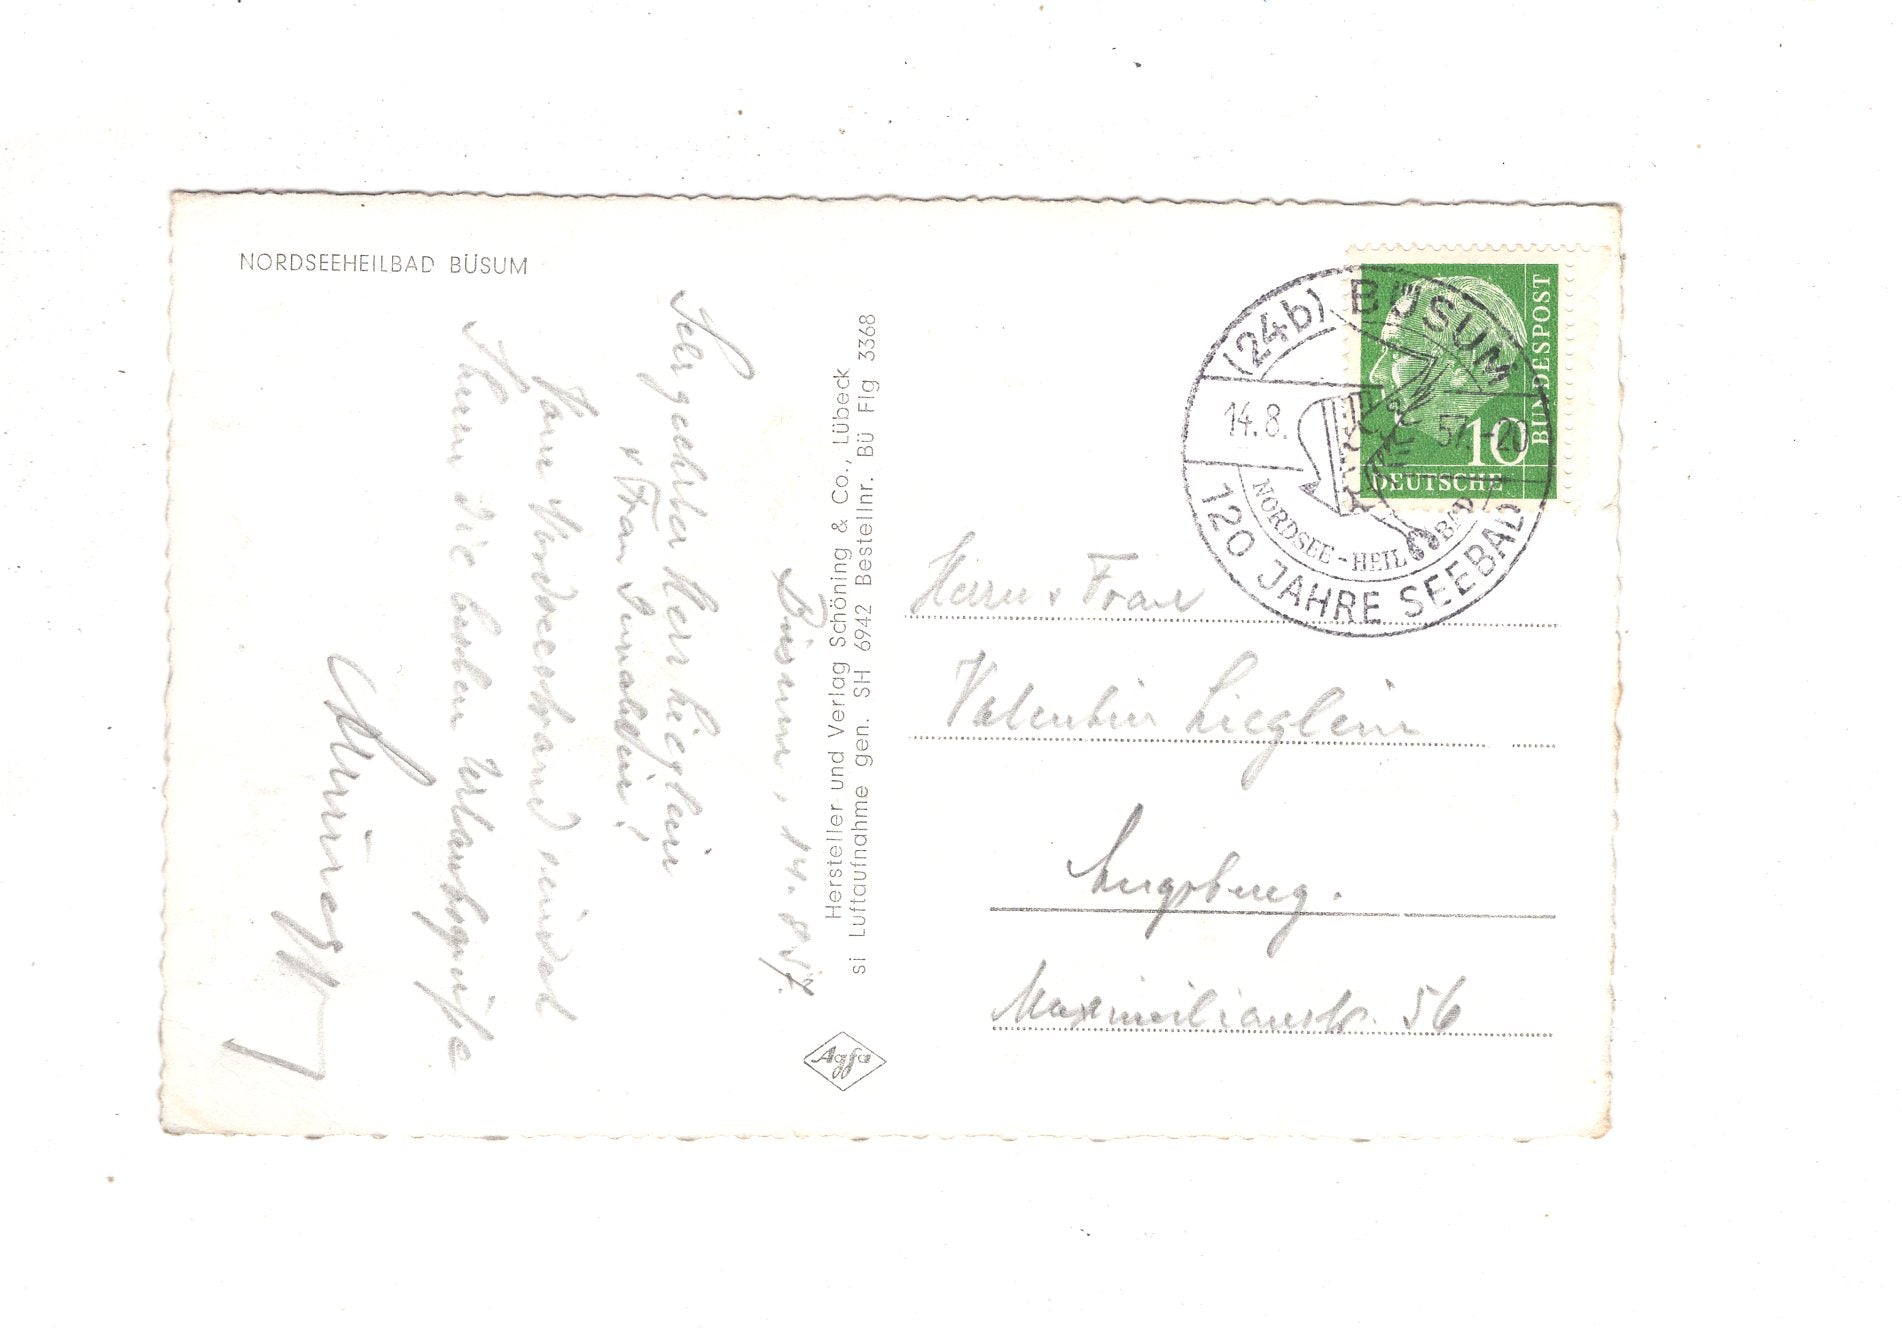 NORDSEEHEILBAD BÜSUM
Büsum, 14.8.57.
Sehr geehrter Herr Lieglein
u. Frau Gemahlin!
Vom Nordseestrand sendet
Ihnen die besten Urlaubsgrüße
Hersteller und Verlag Schöning & Co., Lübeck
si Luftaufnahme gen. SH 6942 Bestellnr. BÜ Flg 3368
Agfa
(24b) BÜSUM
14.8.57.-20
NORDSEE-HEILBAD
120 JAHRE SEEBAD
10
DEUTSCHE
BUNDESPOST
Herrn u Frau
Valentin Lieglein
Augsburg.
Maximilianstr. 56